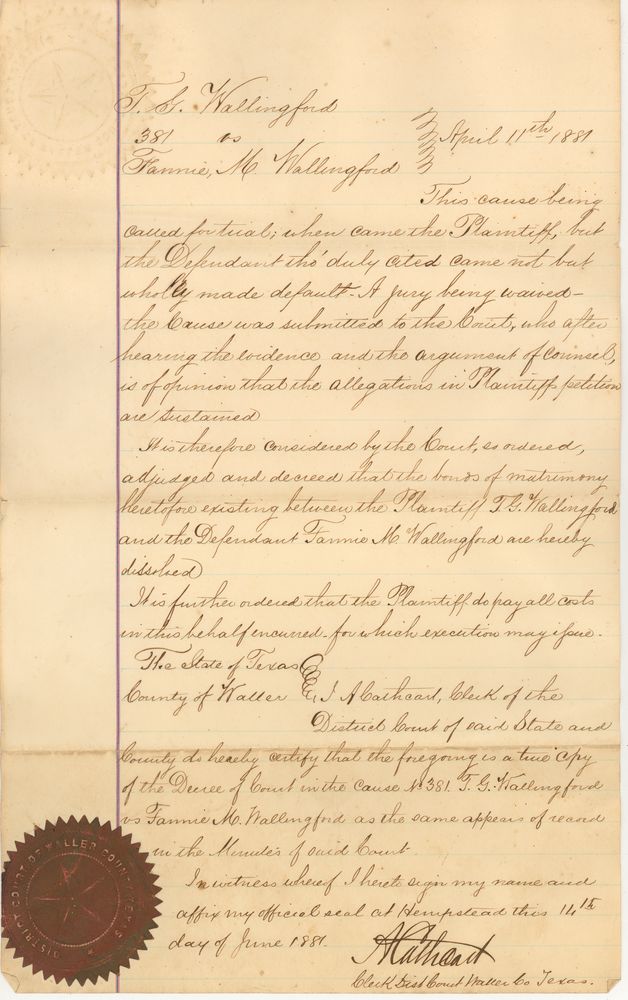 T. G. Wallingford
381 vs April 11th 1881
Fannie, M. Wallingford
This cause being
called for trial; when came the Plaintiff, but
the Defendant tho' duly cited came not but
wholly made default - A jury being waived -
the Cause was submitted to the Court, who after
hearing the evidence and the argument of counsel,
is of opinion that the allegations in Plaintiffs petition
are sustained
It is therefore considered by the Court, so ordered,
adjudged and decreed that the bonds of matrimony
heretofore existing between the Plaintiff T. G. Wallingford
and the Defendant Fannie M. Wallingford are hereby
dissolved
It is further ordered that the Plaintiff do pay all costs
in this behalf incurred - for which execution may issue.
The State of Texas
County of Waller I, A Cathcart, Clerk of the
District Court of said State and
County do hereby certify that the foregoing is a true copy
of the Decree of Court in the cause No 381. T. G. Wallingford
vs Fannie M. Wallingford as the same appears of record
in the Minutes of said Court.
In witness whereof I hereto sign my name and
affix my official seal at Hempstead this 14th
day of June 1881.
A Cathcart
Clerk Dist Court Waller Co Texas.
DISTRICT COURT OF WALLER COUNTY TEXAS